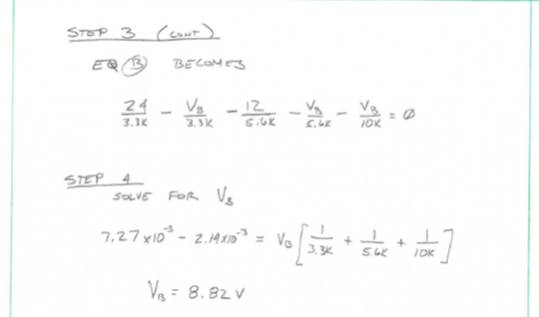 STEP 3 (CONT)
EQ Ⓑ BECOMES
24/3.3K - V_B/3.3K - 12/5.6K - V_B/5.6K - V_B/10K = 0
STEP 4
SOLVE FOR V_B
7.27 x10^-3 - 2.14x10^-3 = V_B [1/3.3K + 1/5.6K + 1/10K]
V_B = 8.82 V